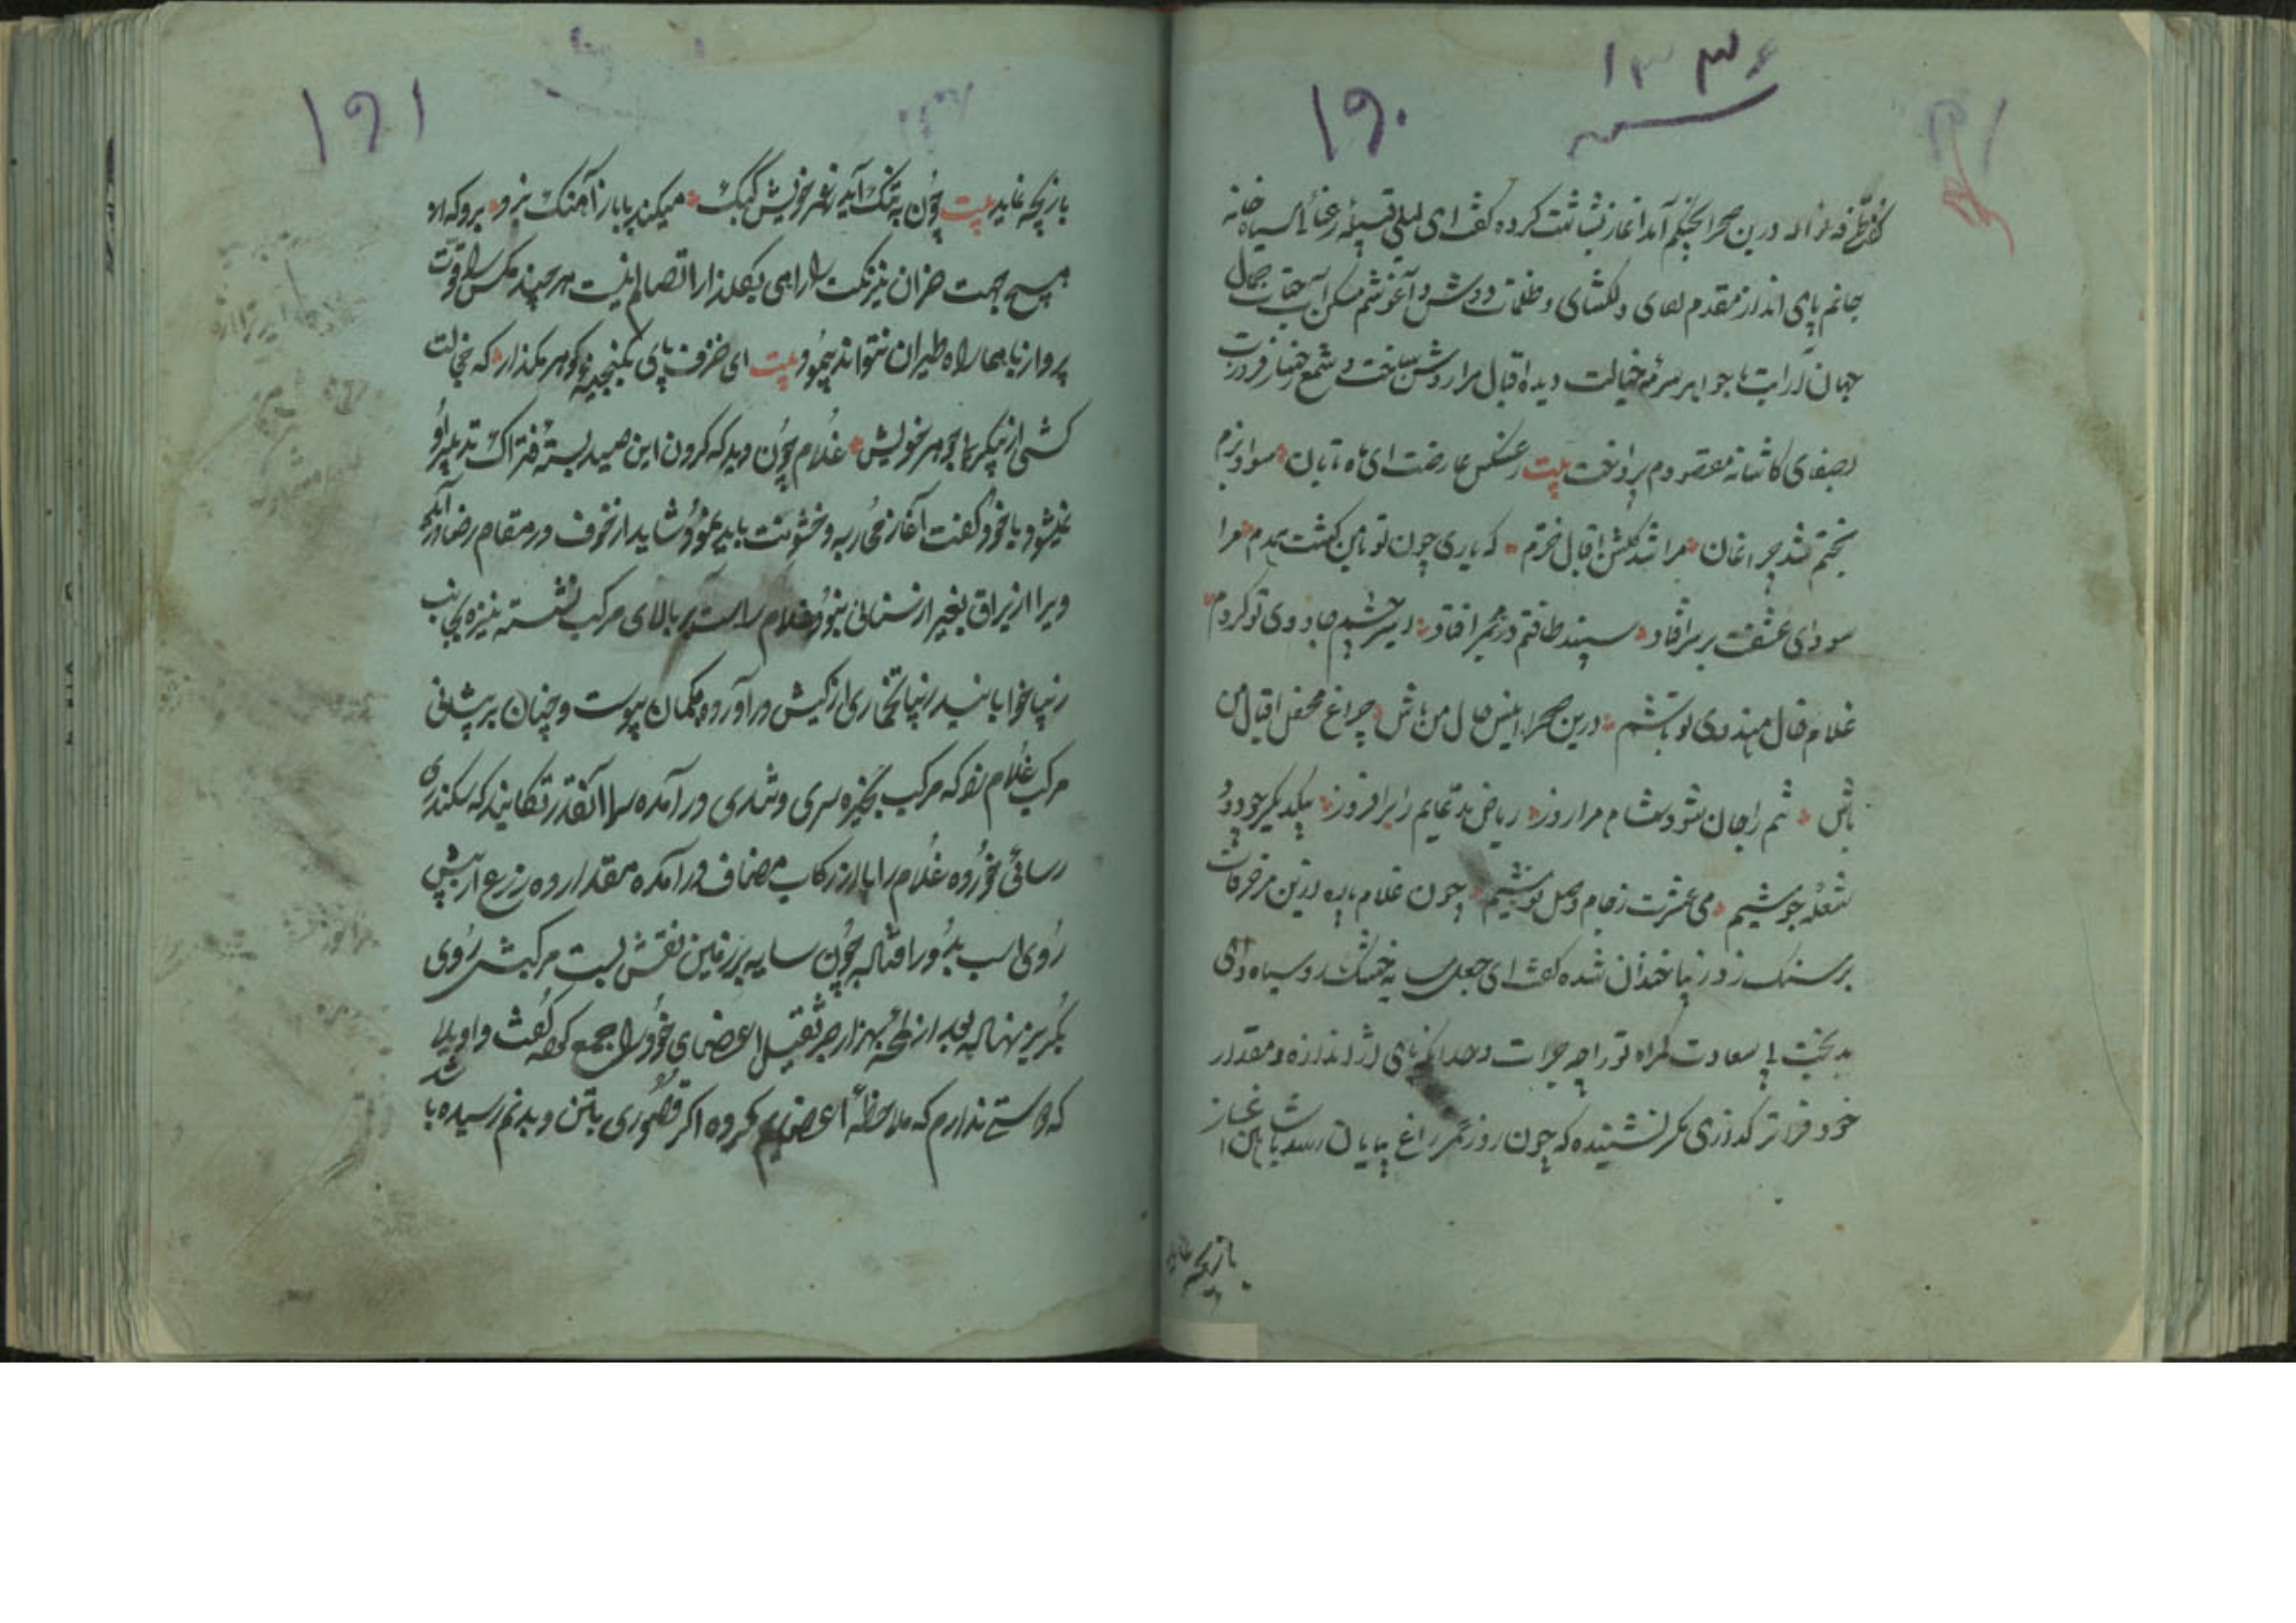 ۱۳۳۶
۱۹۰
درین صحرا بچنگم آمد آغاز بشاشت کرده گفت ای لیلی قبیله رعنائی سیاه خانه
جانم پای انداز مقدم لقای دلکشای و ظلمات دوش و آغوشم مسکن آفتاب جمال
جهان آرایت با جواهر سرمه خیالت دیده اقبال مرا روشن ساخت و شمع رخسار فروزت
بصفای کاشانه مقصودم پرداخت بیت ز عکس عارضت ای ماه تابان سواد بزم
بختم شد چراغان مرا شد گلشن اقبال خرم که یاری چون تو با من گشت همدم مرا
سودای عشقت بر سر افتاد سپند طاقتم در مجمر افتاد اسیر چشم جادوی تو گردم
غلام خال هندوی تو باشم درین صحرا انیس حال من باش چراغ محفل اقبال من
باش تنم را جان شو و شام مرا روز ریاض مدعایم را برافروز بیکدیگر چو دود
شعله جوشیم می عشرت ز جام وصل نوشیم چون غلام پاره ازین مزخرفات
بر سنگ زد زیبا خندان شده گفت ای جعل سایه خشک رو سیاه وای
بدبخت بی سعادت گمراه تو را چه جرأت و حد آنکه پای از اندازه و مقدار
خود فراتر گذاری مگر نشنیده که چون روز عمر زاغ بپایان رسد با شاهین آغاز
بازیچه نماید
۱۹۱
بازیچه نماید بیت چون به تنگ آید ز عمر خویش کبک میکند با باز آهنگ نبرد برو که از
هیچ جهت خزان نیرنگت را راهی بگلزار اتصالم نیست هر چند مگس را قوت
پرواز باشد اما راه طیران نتواند پیمود بیت ای خزف پای بگنجینه گوهر مگذار که خجالت
کشی از پیکر بی جوهر خویش غلام چون دید که گردن این صید بسته فتراک تدبیر او
نمیشود با خود گفت آغاز محاربه و خشونت باید نمود شاید از خوف در مقام رضا درآید
ویرا از یراق بغیر از سنانی نبود غلام راست بر بالای مرکب نشسته نیزه بجانب
زیبا خوابانید زیبا تخاری از کیش درآورده بکمان پیوست و چنان بر پیشانی
مرکب غلام زد که مرکب بخیره سری و تندی درآمده او را آنقدر تکانید که سکندری
رسائی خورده غلام را با از رکاب مصاف درآمده مقدار ده زرع از پیش
روی اسب بدور افتاد چون سایه بر زمین نقش بست مرکبش روی
بگریز نهاد بعد از لمحه بهزار جر ثقیل اعضای خود را جمع کرده گفت واویلا
که دستی ندارم که ملاحظه اعضایم کرده اگر قصوری بتن و بدنم رسیده با
شد